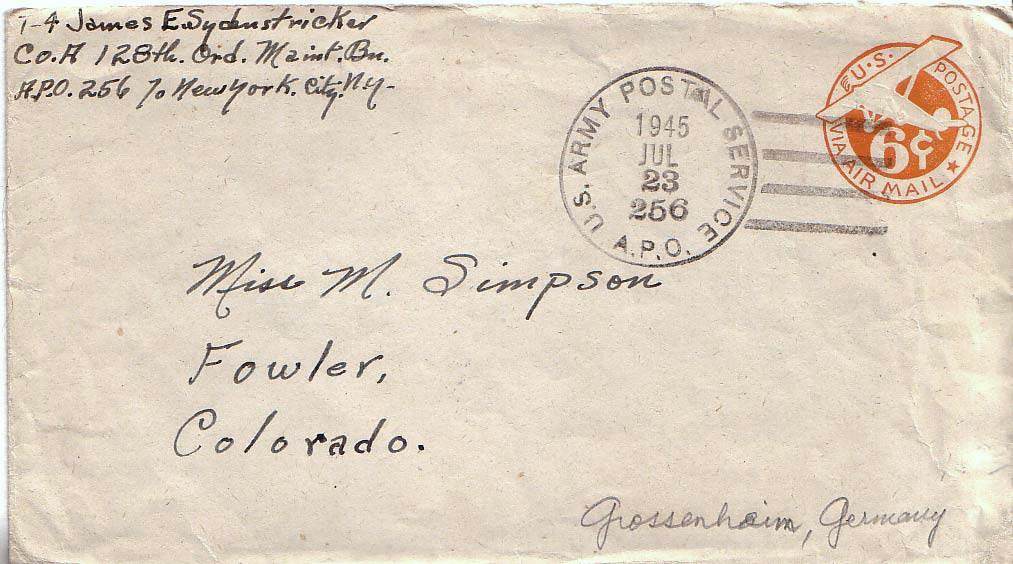 T-4 James E. Sydenstricker
Co. A 128th. Ord. Maint. Bn.
A.P.O. 256 % New York. City. N.Y-
U.S. ARMY POSTAL SERVICE
1945
JUL
23
256
A.P.O.
U.S. POSTAGE
6¢
VIA AIR MAIL
Miss M. Simpson
Fowler,
Colorado.
Grossenhaim, Germany